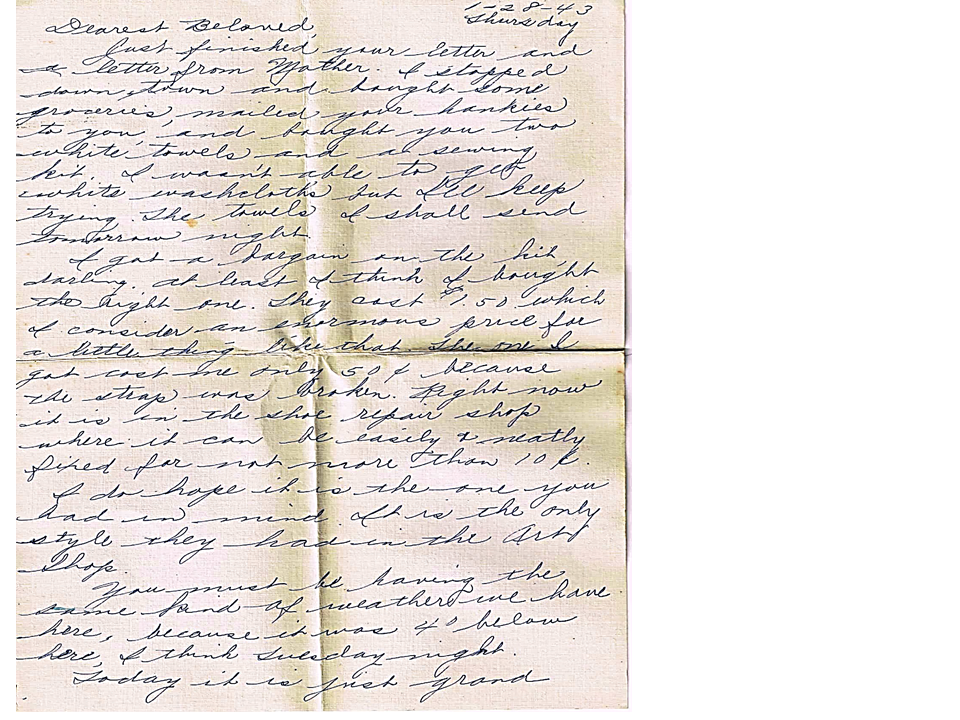 1-28-43
Thursday
Dearest Beloved,
Just finished your letter and
a letter from Mother. I stopped
down town and bought some
groceries, mailed your hankies
to you, and bought you two
white towels and a sewing
kit. I wasn't able to get
white washcloths but I'll keep
trying. The towels I shall send
tomorrow night.
I got a bargain on the kit,
darling. at least I think I bought
the right one. They cost $1.50 which
I consider an enormous price for
a little thing like that. The one I
got cost me only 50¢ because
the strap was broken. Right now
it is in the shoe repair shop
where it can be easily & neatly
fixed for not more than 10¢.
I do hope it is the one you
had in mind. It is the only
style they had in the Art
Shop.
You must be having the
same kind of weather we have
here, because it was 4° below
here, I think Tuesday night.
Today it is just grand